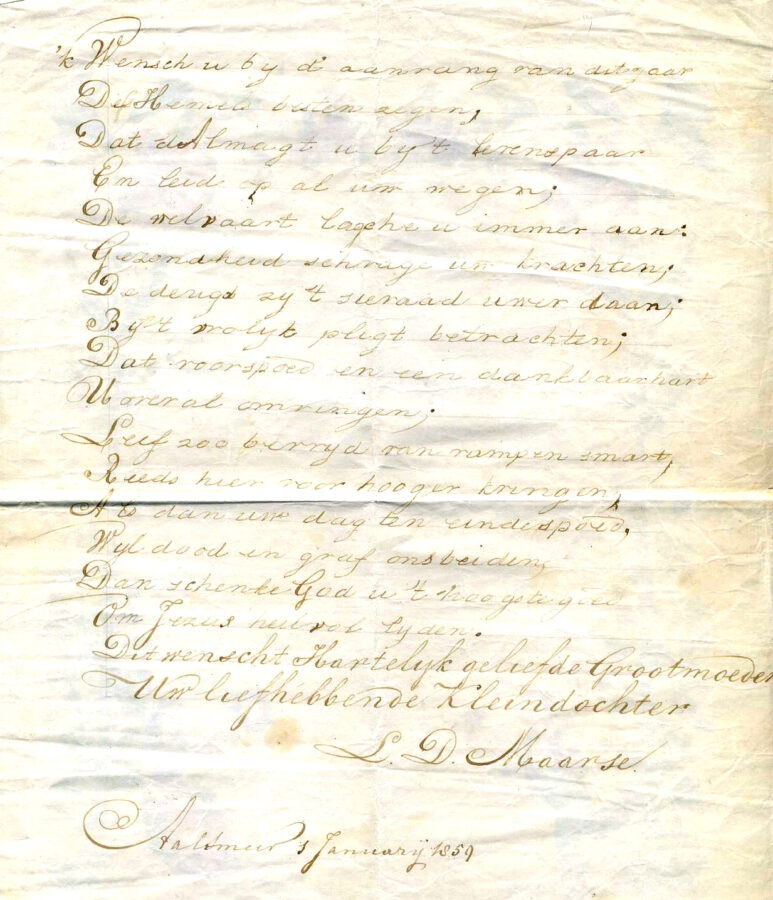 'k Wensch u by d' aanvang van dit jaar
Des Hemels besten zegen;
Dat d'Almagt u by 't levenspaar
En leid op al uw wegen;
De welvaart lagche u immer aan:
Gezondheid schrage uw krachten;
De deugd zy 't sieraad uwer daan;
By 't vrolyk pligt betrachten;
Dat voorspoed en een dankbaarhart
U overal omringen;
Leef zoo bevryd van ramp en smart,
Reeds hier voor hooger kringen,
Als dan uw dag ten eindespoed,
Wyl dood en graf ons beiden,
Dan schenke God u 't hoogste goed
Om Jezus heilvol lyden.
Dit wenscht Hartelyk geliefde Grootmoeder
Uw liefhebbende Kleindochter
L. D. Maarse
Aalsmeer 1 January 1859